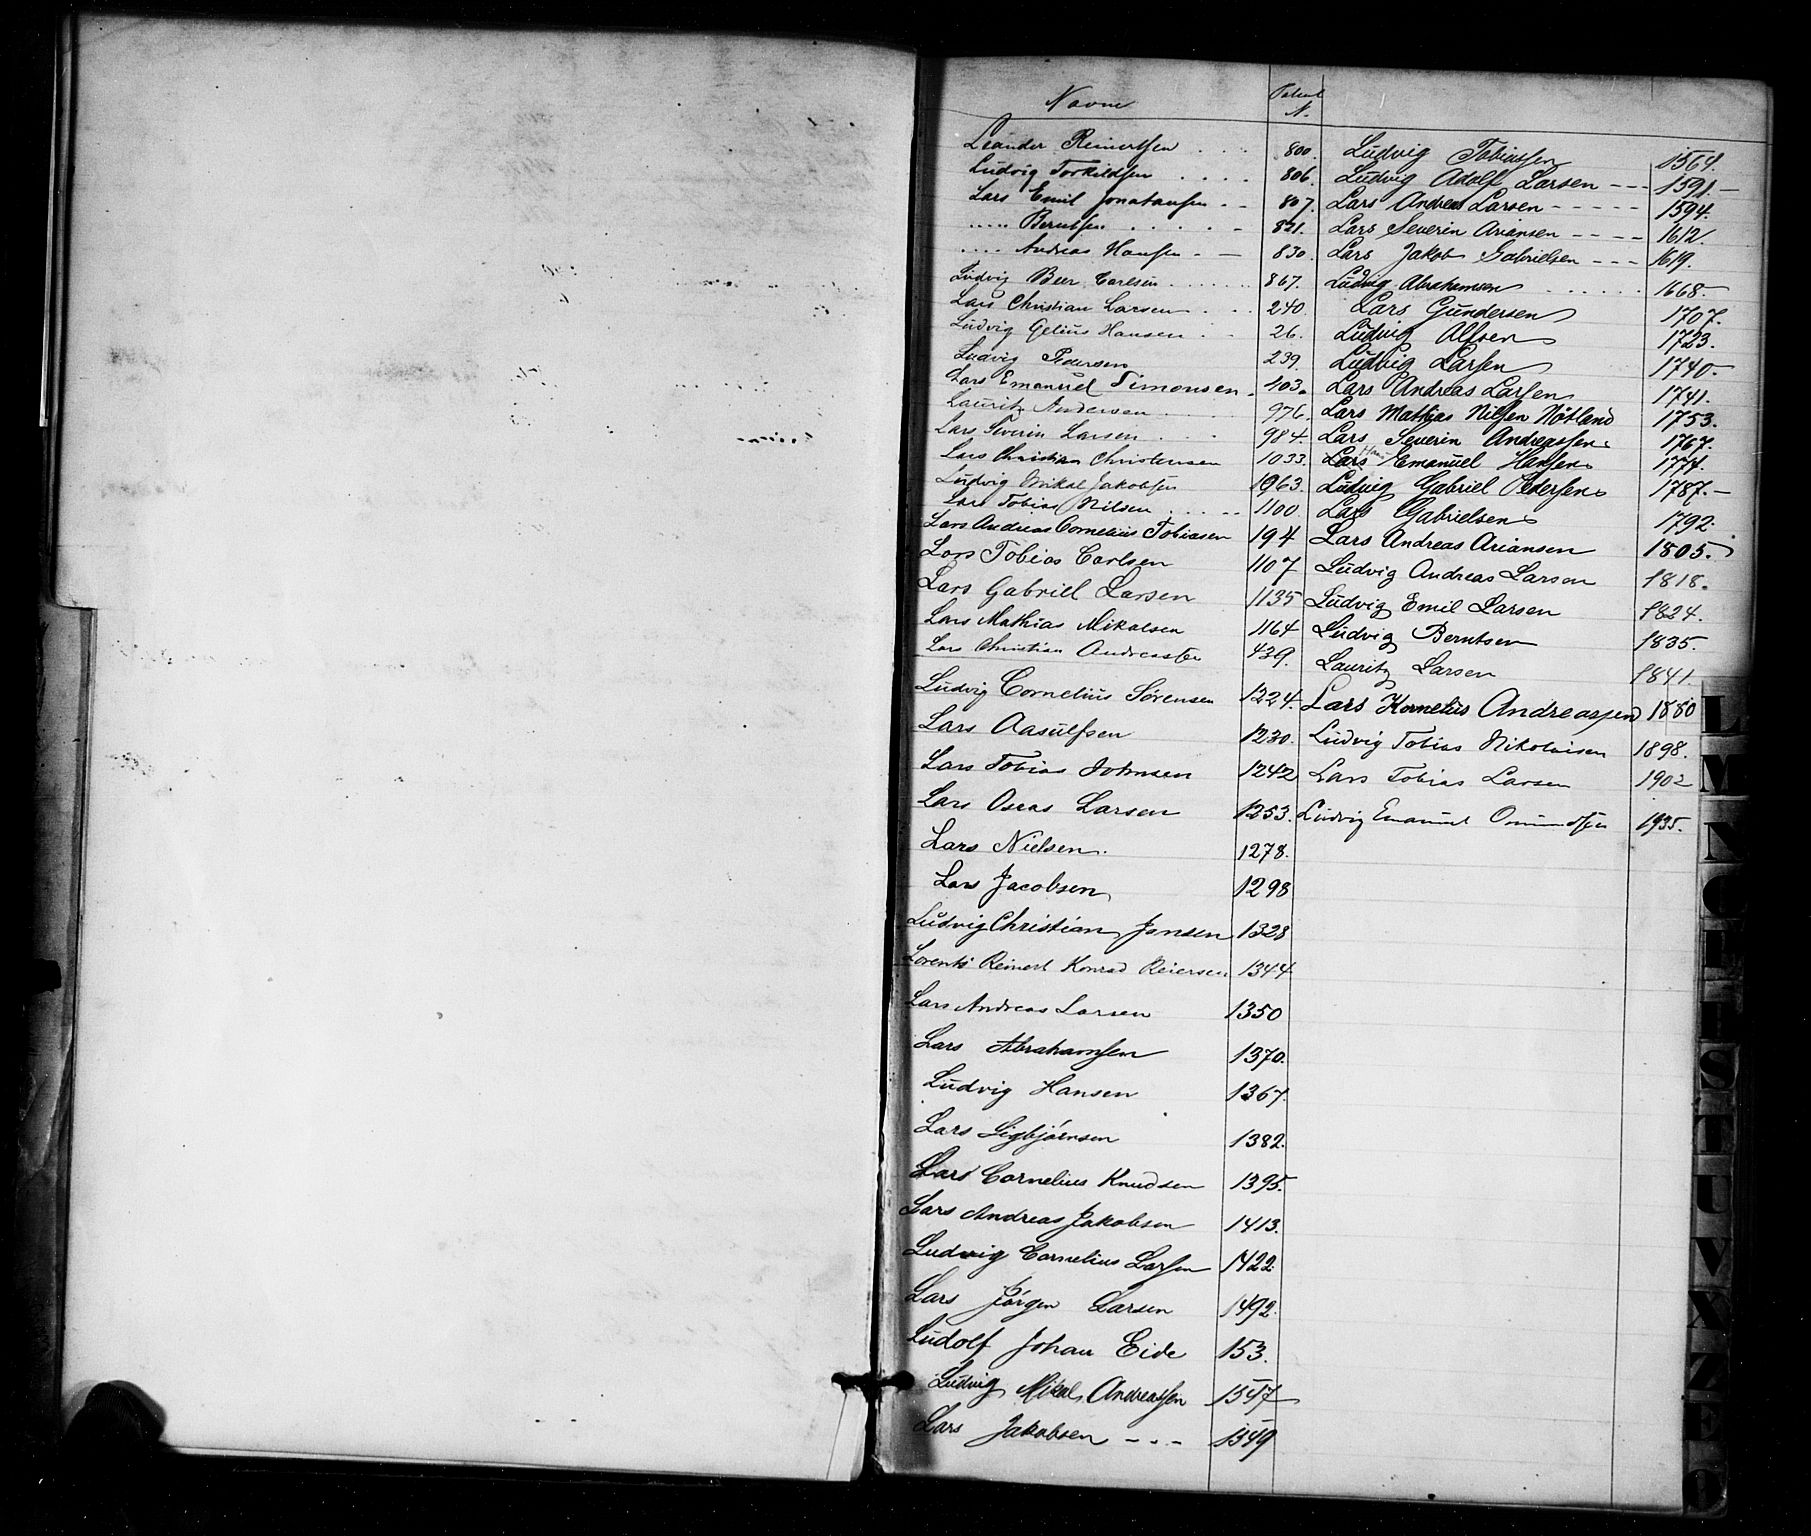 Navne Patent N.
Leander Reinertsen . . . 800.
Ludvig Torkildsen . . . . 806.
Lars Emil Jonatansen - - 807.
..... Berntsen . . . . . - 821.
.... Andreas Hansen - — 830.
Ludvig Beer Carlsen . . . . . . 867.
Lars Christian Larsen . . . 240.
Ludvig Gelius Hansen . - 26.
Ludvig Pedersen 239.
Lars Emanuel Simonsen. 403.
Lauritz Andersen . . . . 976.
Lars Severin Larsen . . . 984.
Lars Christian Christensen 1033.
Ludvig Mikal Jakobsen 1063.
Lars Tobias Nilsen . . . . . 1100.
Lars Andreas Cornelius Tobiasen 194
Lars Tobias Carlsen 1107
Lars Gabriel Larsen 1135
Lars Mathias Mikalsen 1164
Lars Christian Andreassen 439.
Ludvig Cornelius Sørensen 1224.
Lars Aasulfsen 1230.
Lars Tobias Johnsen 1242
Lars Oseas Larsen 1253.
Lars Nielsen. 1278.
Lars Jacobsen 1298
Ludvig Christian Jansen 1328
Lorents Reinert Konrad Reiersen 1344
Lars Andreas Larsen 1350
Lars Abrahamsen 1370.
Ludvig Hansen 1367.
Lars Sigbjørnsen 1382.
Lars Cornelius Knudsen 1395.
Lars Andreas Jakobsen 1413.
Ludvig Cornelius Larsen 1422
Lars Jørgen Larsen 1492.
Ludolf Johan Eide 153.
Ludvig Mikal Andreassen 1547
Lars Jakobsen - - - 1549
Ludvig Tobiassen 1564.
Ludvig Adolf Larsen - - - 1591. -
Lars Andreas Larsen - - - - - 1594.
Lars Severin Arensen - - - - 1612.
Lars Jakob Gabrielsen - - - 1619.
Ludvig Abrahamsen . . . . . . 1668.
Lars Gundersen 1707.
Ludvig Alfsen 1723.
Ludvig Larsen 1740.
Lars Andreas Larsen 1741.
Lars Mathias Nilsen Nøtland 1753.
Lars Severin Andreassen 1767.
Lars Hans Emanuel Hansen 1774.
Ludvig Gabriel Pedersen 1787. -
Lars Gabrielsen 1792.
Lars Andreas Ariansen 1805.
Ludvig Andreas Larsen 1818.
Ludvig Emil Larsen 1824.
Ludvig Berntsen 1835.
Lauritz Larsen 1841.
Lars Kornelius Andreassen 1880
Ludvig Tobias Nikolaisen 1898.
Lars Tobias Larsen 1902
Ludvig Emanuel Omundsen 1935.
L
M
N
O
S
T
U
V
X
Z
Æ
Ø